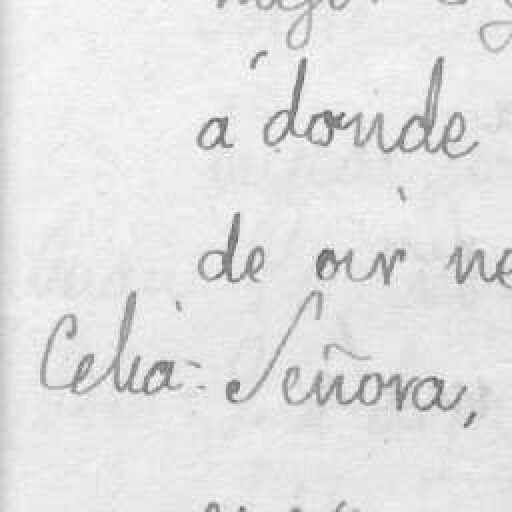 á donde
de oir
Celia: Señora,